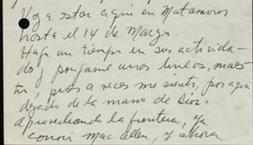 Voy a estar aquí en Matamoros
hasta el 14 de Marzo.
Haga un tiempo en sus activida-
des y pongame unas lineas, maes-
tro, pues a veces me siento, por aquí
dejado de la mano de Dios.
Aprovechando la frontera, ya
conocí Mac Allen, y ahora